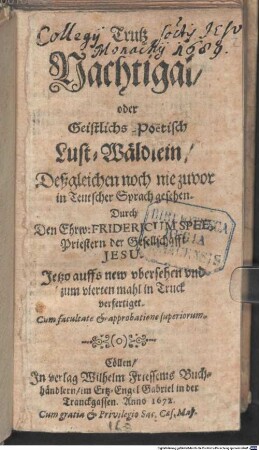 Collegij Soctis Jesu
Monachij 1689.
Trutz
Nachtigal/
oder
Geistlichs-Poetisch
Lust-Wäldlein/
Deßgleichen noch nie zuvor
in Teutscher Sprach gesehen.
Durch
Den Ehrw: FRIDERICUM SPEE,
Priestern der Gesellschafft
JESU.
Jetzo auffs new vbersehen vnd
zum vierten mahl in Truck
verfertiget.
Cum facultate & approbatione superiorum.
Cöllen/
In verlag Wilhelm Friessems Buch-
händlern/im Ertz-Engel Gabriel in der
Tranckgassen. Anno 1672.
Cum gratia & Privilegio Sac. Cæs. Maj.